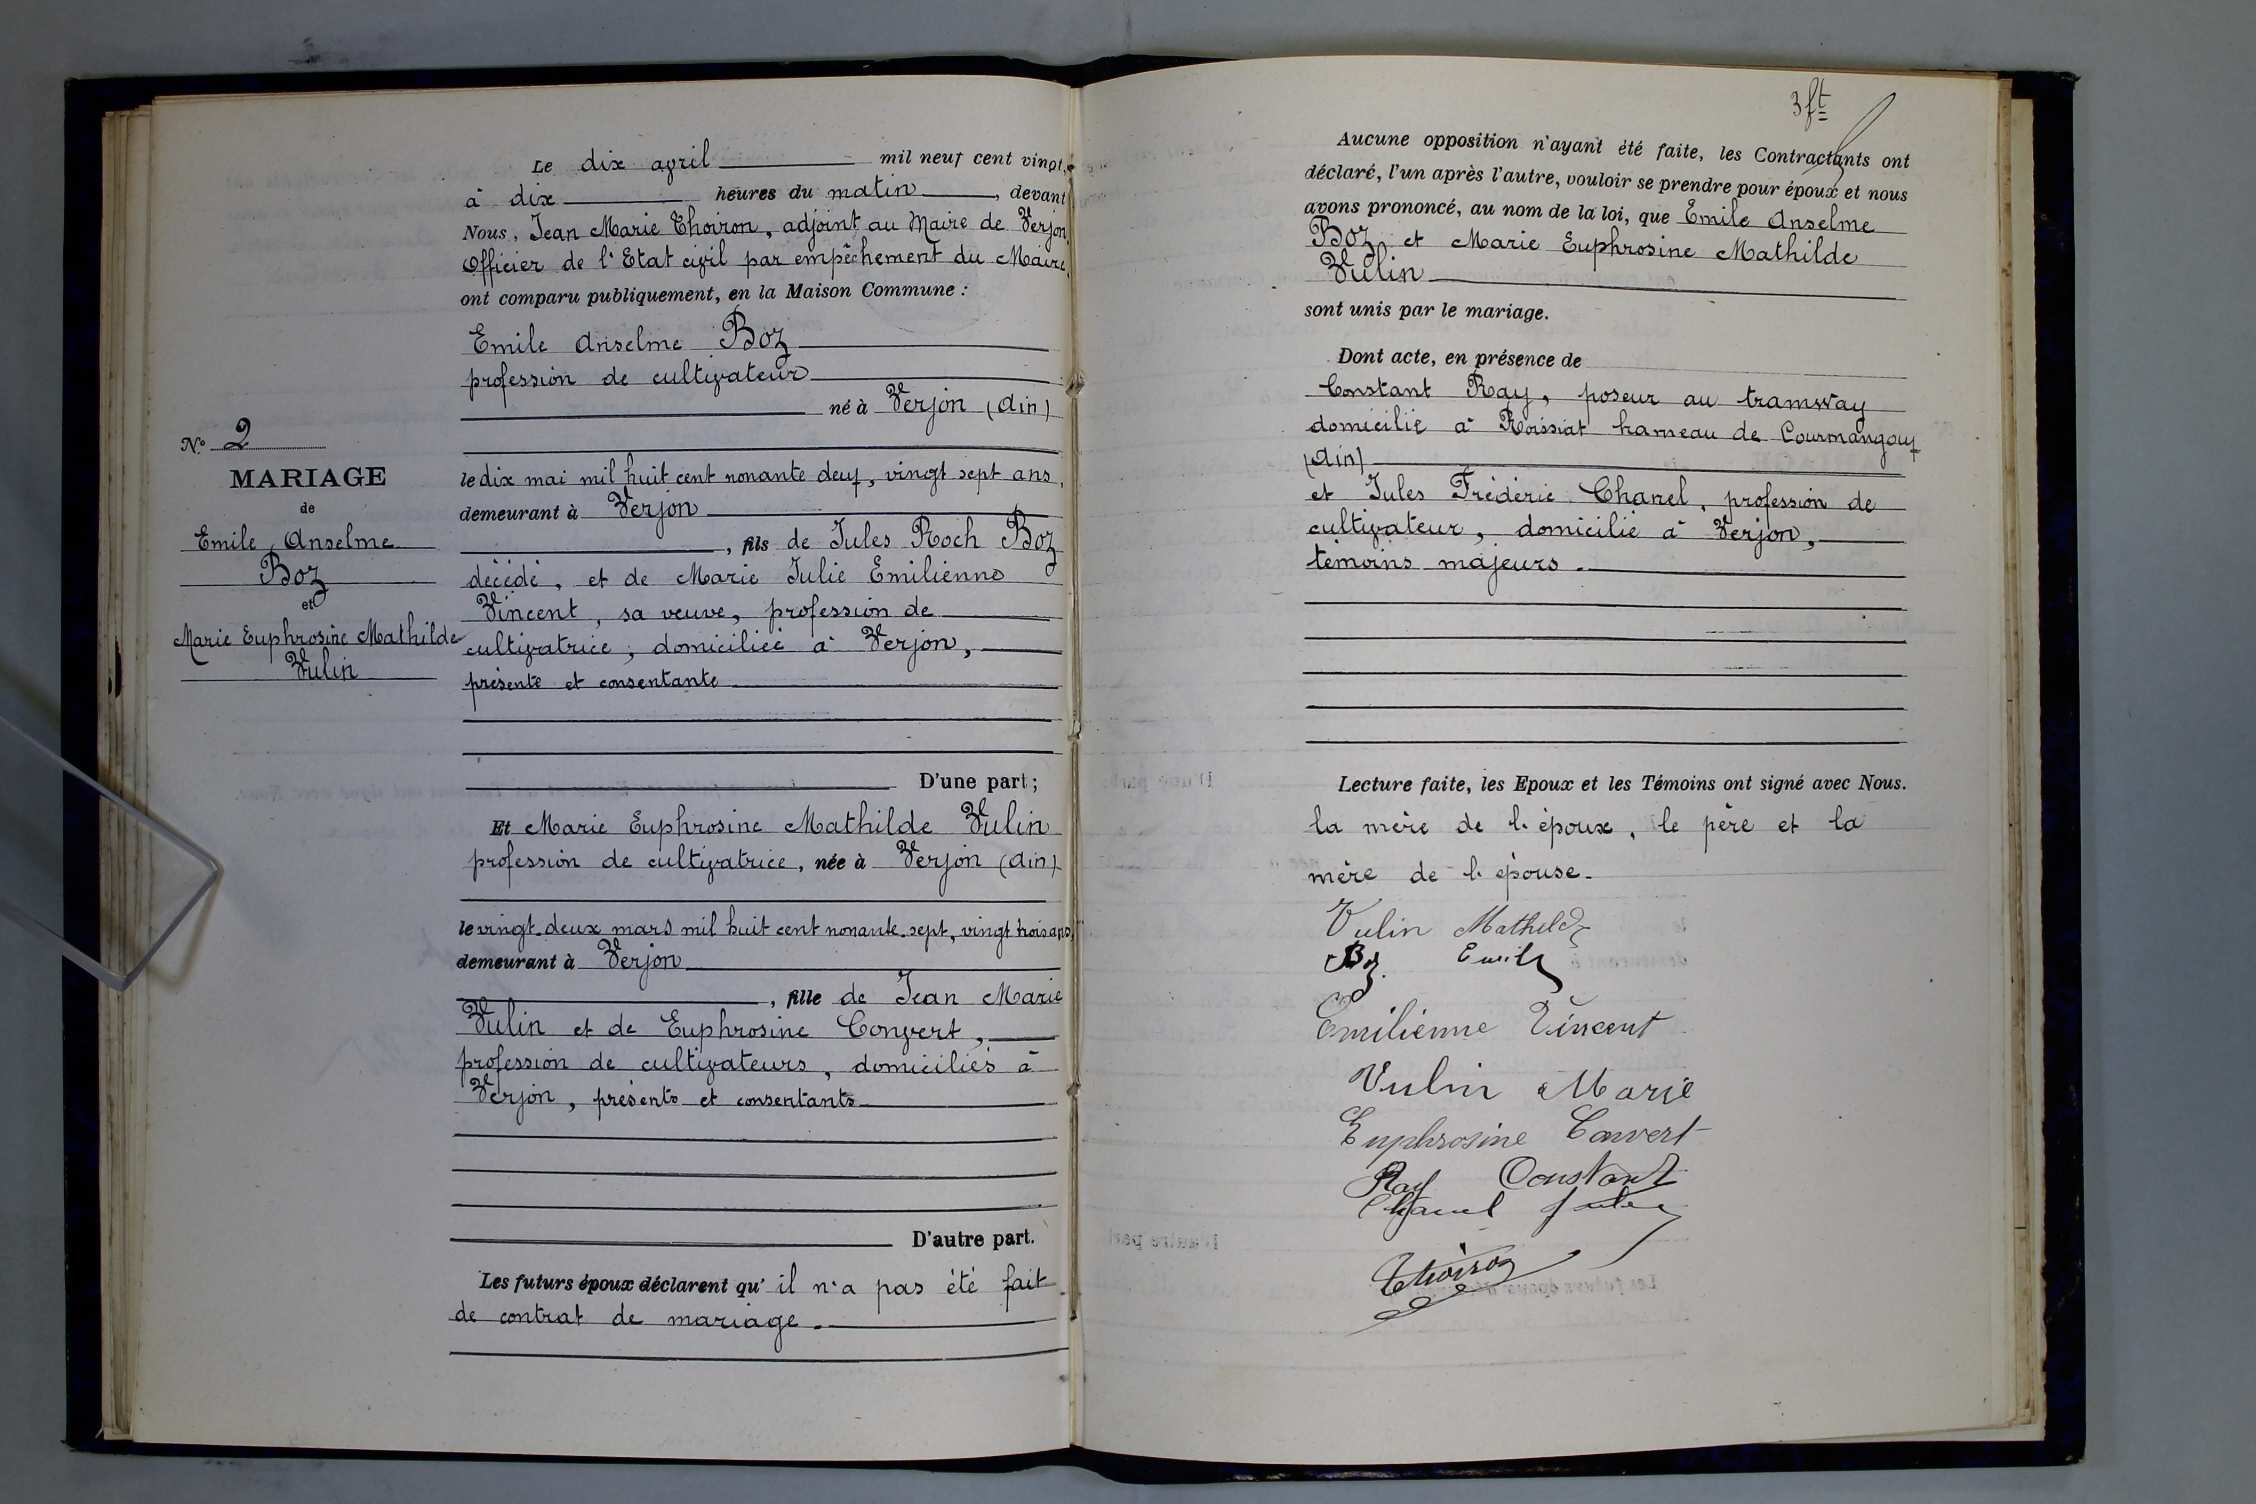 N° 2
MARIAGE
de
Emile Anselme
Boz
et
Marie Euphrosine Mathilde
Vulin
Le dix avril mil neuf cent vingt,
à dix heures du matin, devant
Nous, Jean Marie Thoiron, adjoint au Maire de Verjon
Officier de l'Etat civil par empêchement du Maire,
ont comparu publiquement, en la Maison Commune :
Emile Anselme Boz
profession de cultivateur
né à Verjon (Ain)
le dix mai mil huit cent nonante deux, vingt sept ans,
demeurant à Verjon
, fils de Jules Roch Boz
décédé, et de Marie Julie Emilienne
Vincent, sa veuve, profession de
cultivatrice, domiciliée à Verjon,
présente et consentante
D'une part ;
Et Marie Euphrosine Mathilde Vulin
profession de cultivatrice, née à Verjon (Ain)
le vingt-deux mars mil huit cent nonante-sept, vingt trois ans,
demeurant à Verjon
, fille de Jean Marie
Vulin et de Euphrosine Convert,
profession de cultivateurs, domiciliés à
Verjon, présents et consentants
D'autre part.
Les futurs époux déclarent qu'il n'a pas été fait
de contrat de mariage.
3 ft
Aucune opposition n'ayant été faite, les Contractants ont
déclaré, l'un après l'autre, vouloir se prendre pour époux et nous
avons prononcé, au nom de la loi, que Emile Anselme
Boz et Marie Euphrosine Mathilde
Vulin
sont unis par le mariage.
Dont acte, en présence de
Constant Ray, poseur au tramway
domicilié à Roissiat hameau de Courmangoux
(Ain)
et Jules Frédéric Chanel, profession de
cultivateur, domicilié à Verjon,
témoins majeurs.
Lecture faite, les Epoux et les Témoins ont signé avec Nous.
la mère de l'époux, le père et la
mère de l'épouse.
Vulin Mathilde
Boz Emile
Emilienne Vincent
Vulin Marie
Euphrosine Convert
Ray Constant
Chanel Jules
Thoiron